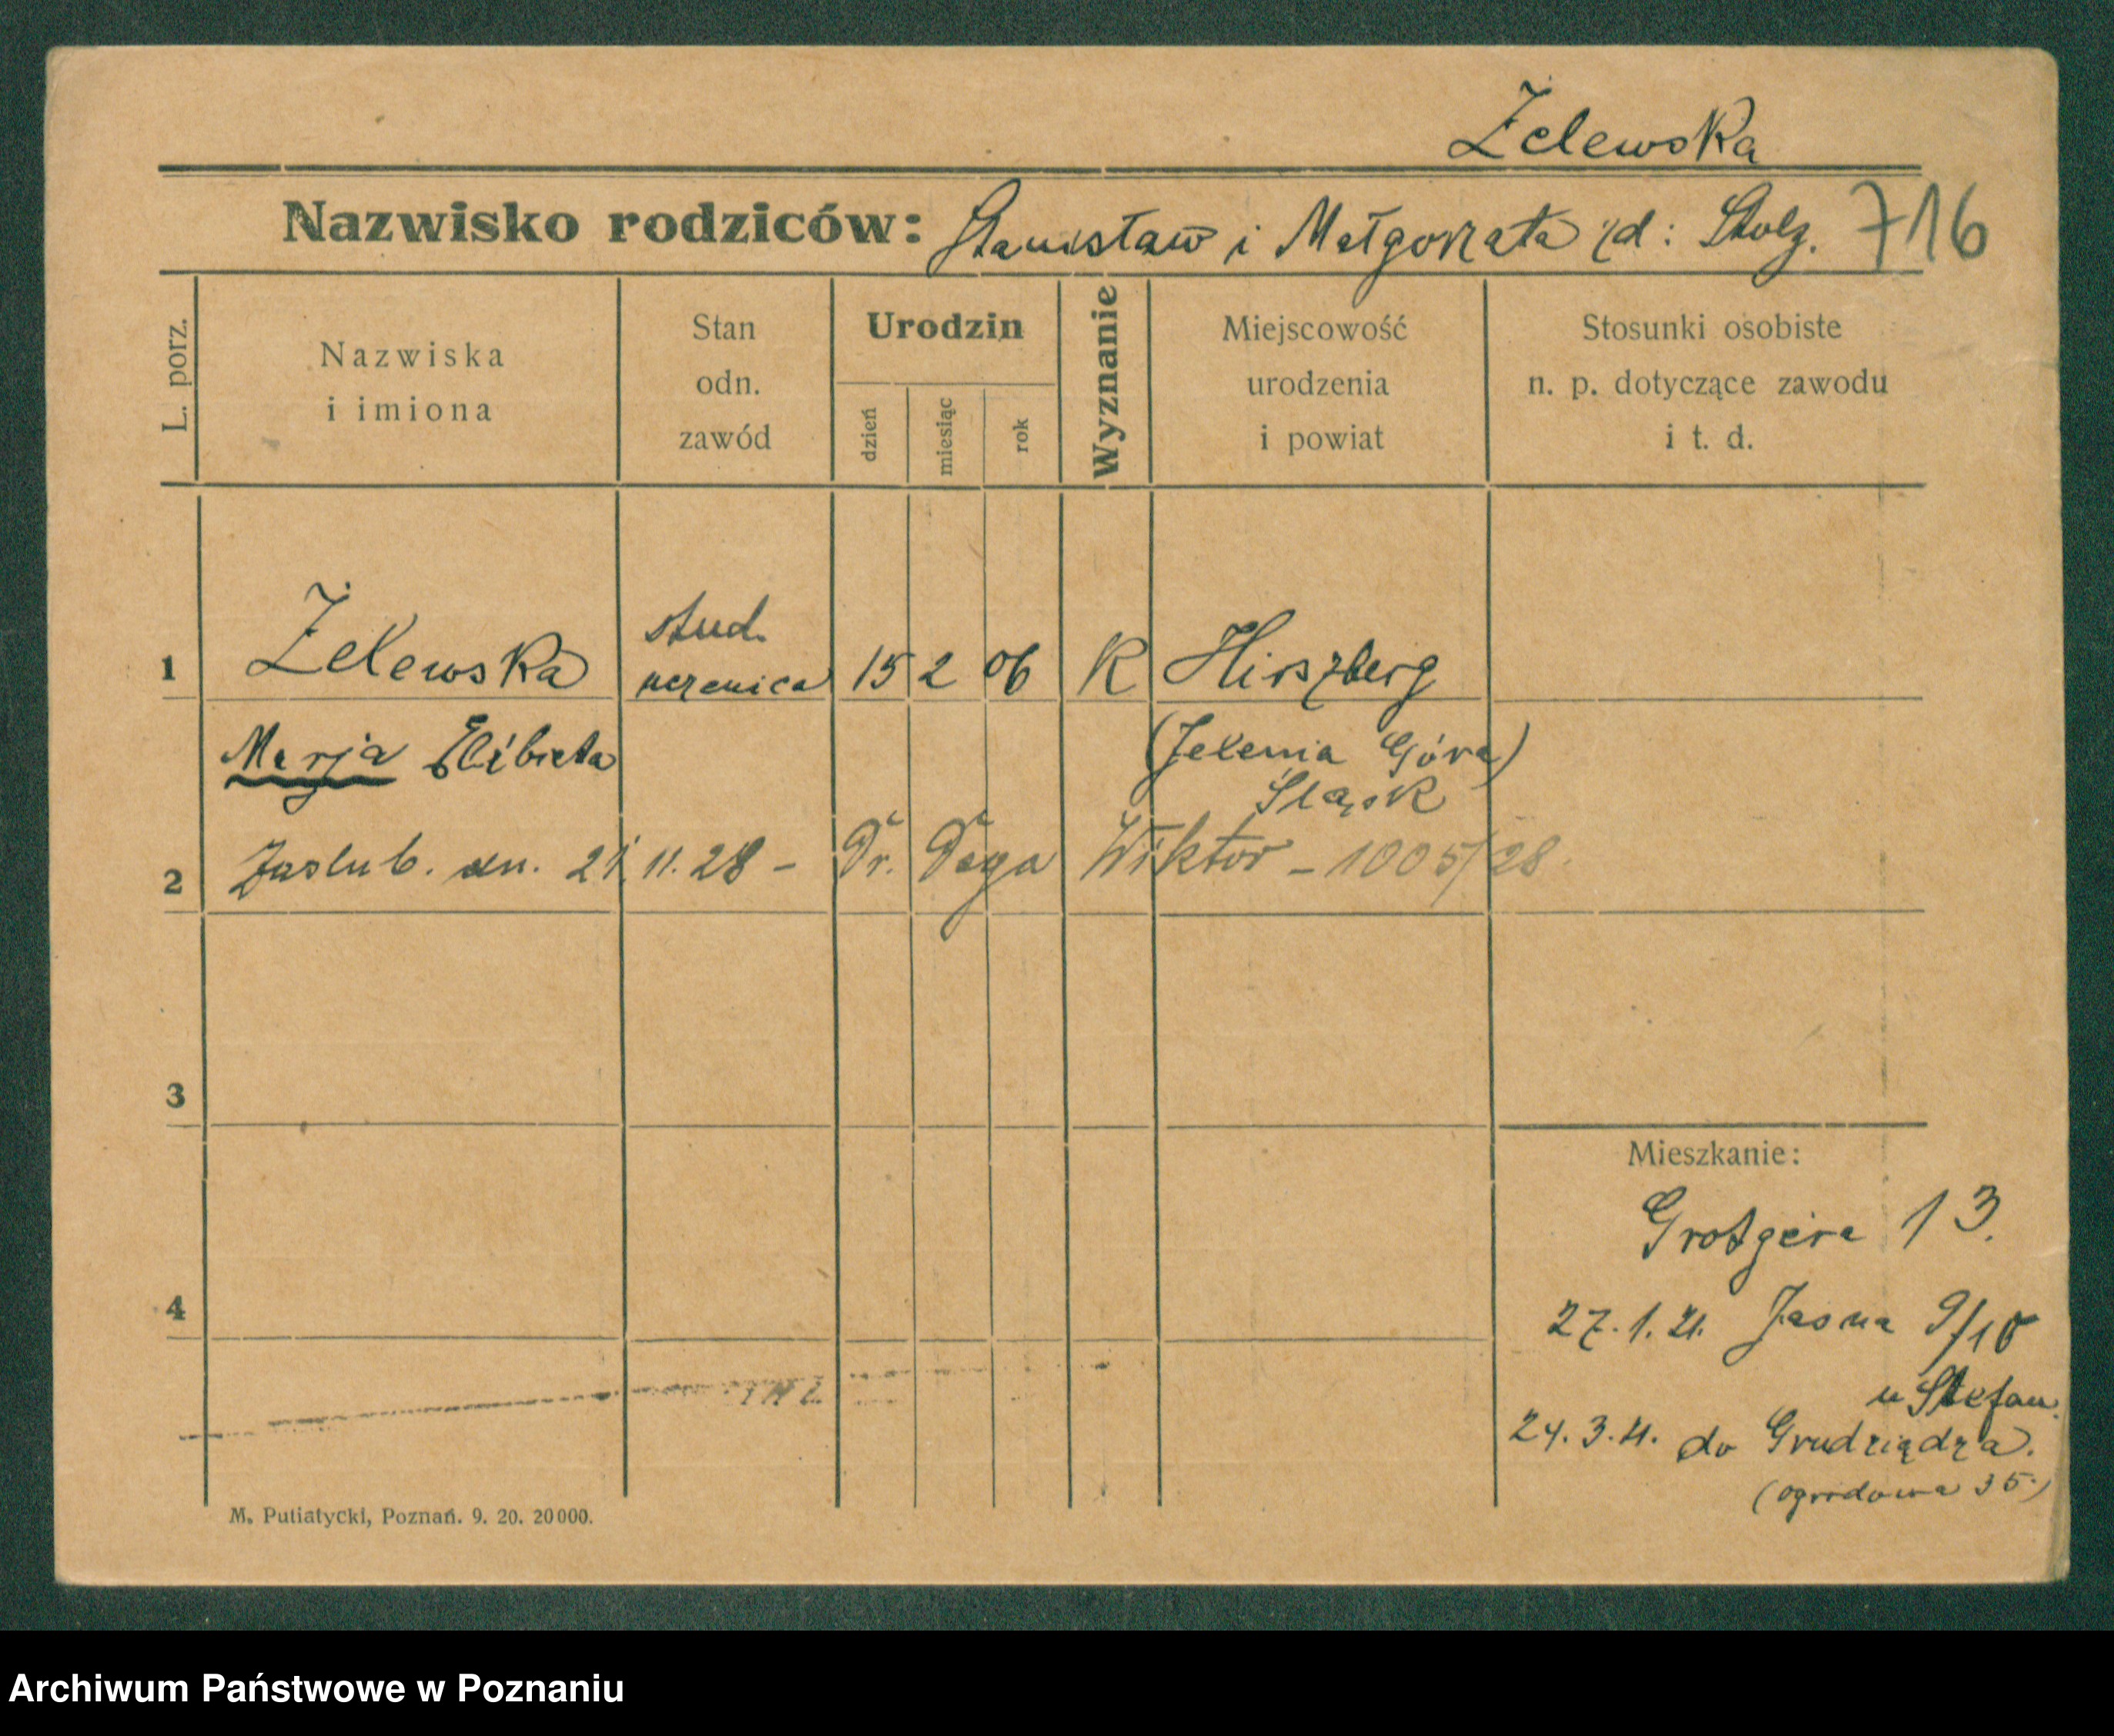 Żelewska
Nazwisko rodziców: Stanisław i Małgorzata zd: Stolz. 716
L. porz.
Nazwiska
i imiona
Stan
odn.
zawód
Urodzin
dzień
miesiąc
rok
Wyznanie
Miejscowość
urodzenia
i powiat
Stosunki osobiste
n. p. dotyczące zawodu
i t. d.
stud.
1 Żelewska uczenica 15 2 06 K Hirszberg
Marja Elżbieta (Jelenia Góra)
Śląsk
2 Zaslub. dn. 21.11.28 – Dr. Dega Wiktor – 1005/28.
3
Mieszkanie:
Grotgera 13.
4
27.1.21. Jasna 9/10
u Stefan.
24.3.21. do Grudziądza.
(ogrodowa 35)
M. Putiatycki, Poznań. 9. 20. 20000.
Archiwum Państwowe w Poznaniu